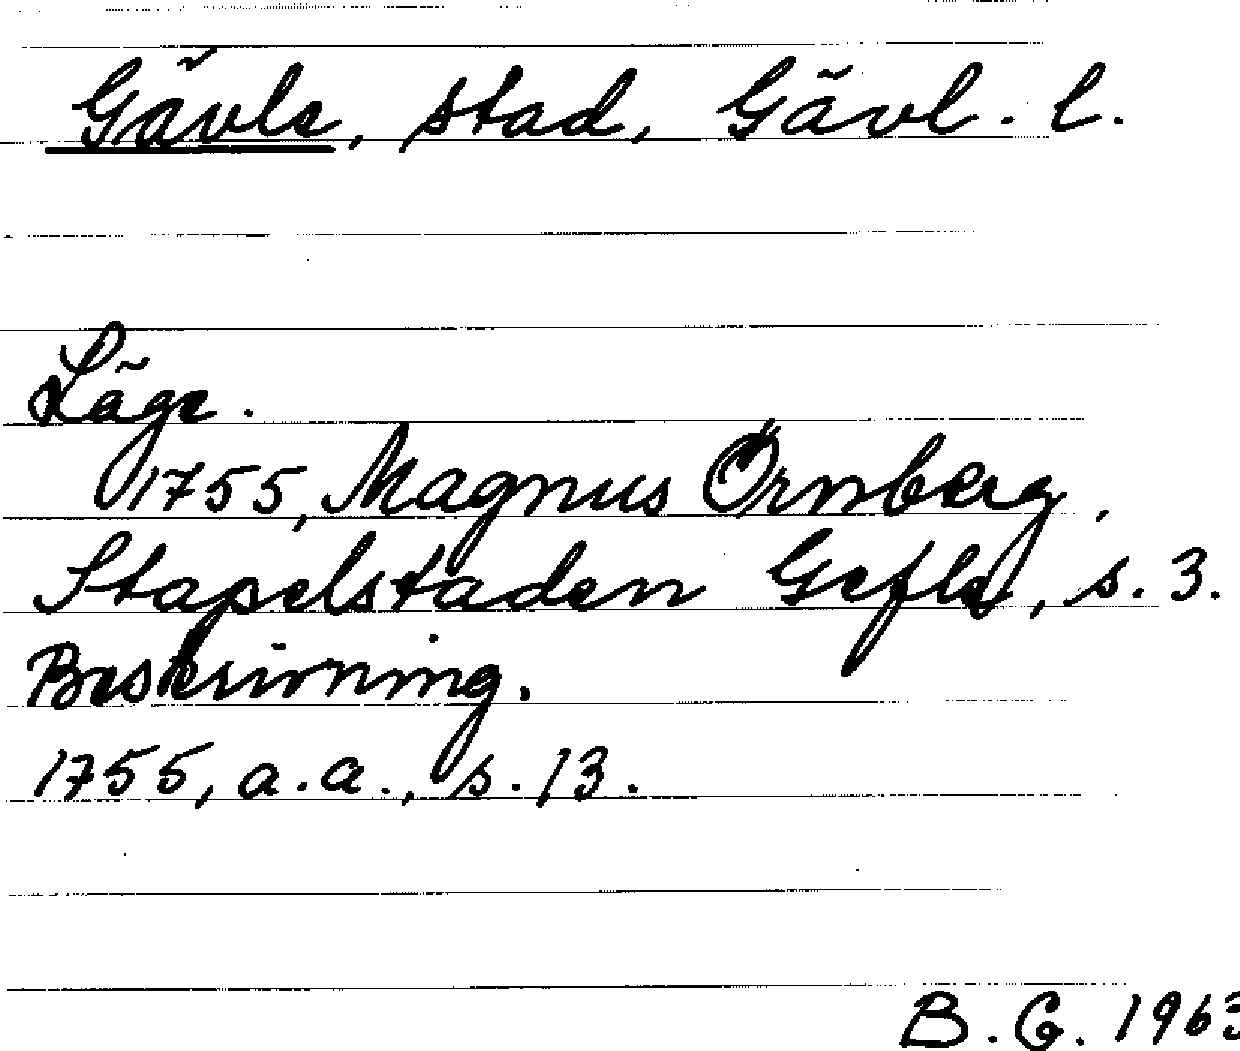 Gävle, stad, Gävl. l.
Läge.
1755, Magnus Örnberg,
Stapelstaden Gefle, s. 3.
Beskrivning.
1755, a.a., s. 13.
B.G. 1963